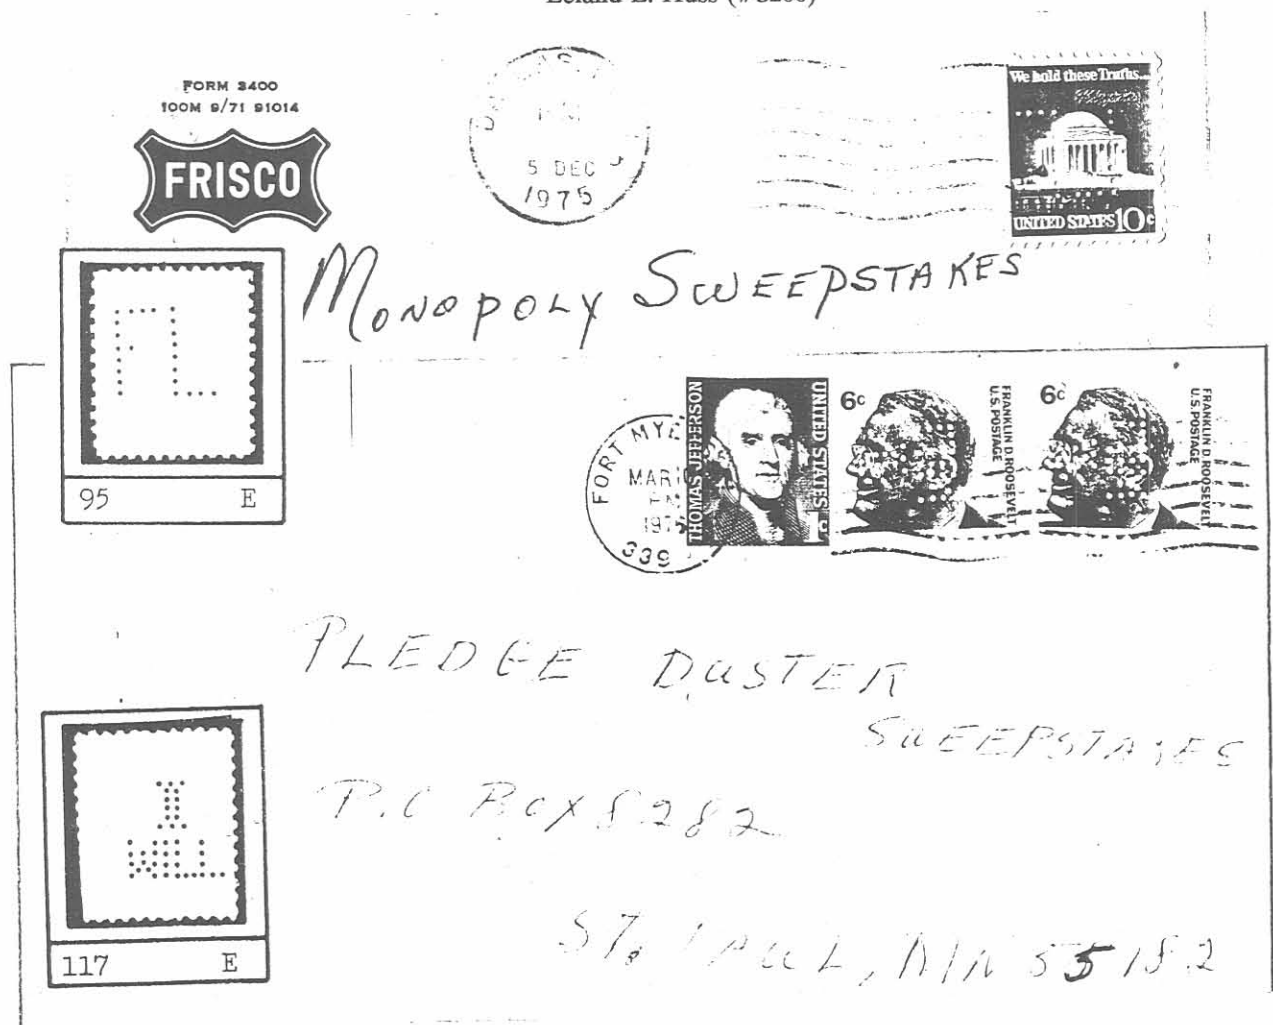 FORM 3400
100M 9/71 91014
FRISCO
5 DEC
1975
We hold these Truths...
UNITED STATES 10c
MONOPOLY SWEEPSTAKES
FL
95 E
FORT MYE
MAR
PM
197
339
THOMAS JEFFERSON
UNITED STATES
1c
6c
FRANKLIN D. ROOSEVELT
U.S. POSTAGE
6c
FRANKLIN D. ROOSEVELT
U.S. POSTAGE
PLEDGE DUSTER
SWEEPSTAKES
P.O BOX 8282
ST. PAUL, MN 55182
I
WILL
117 E